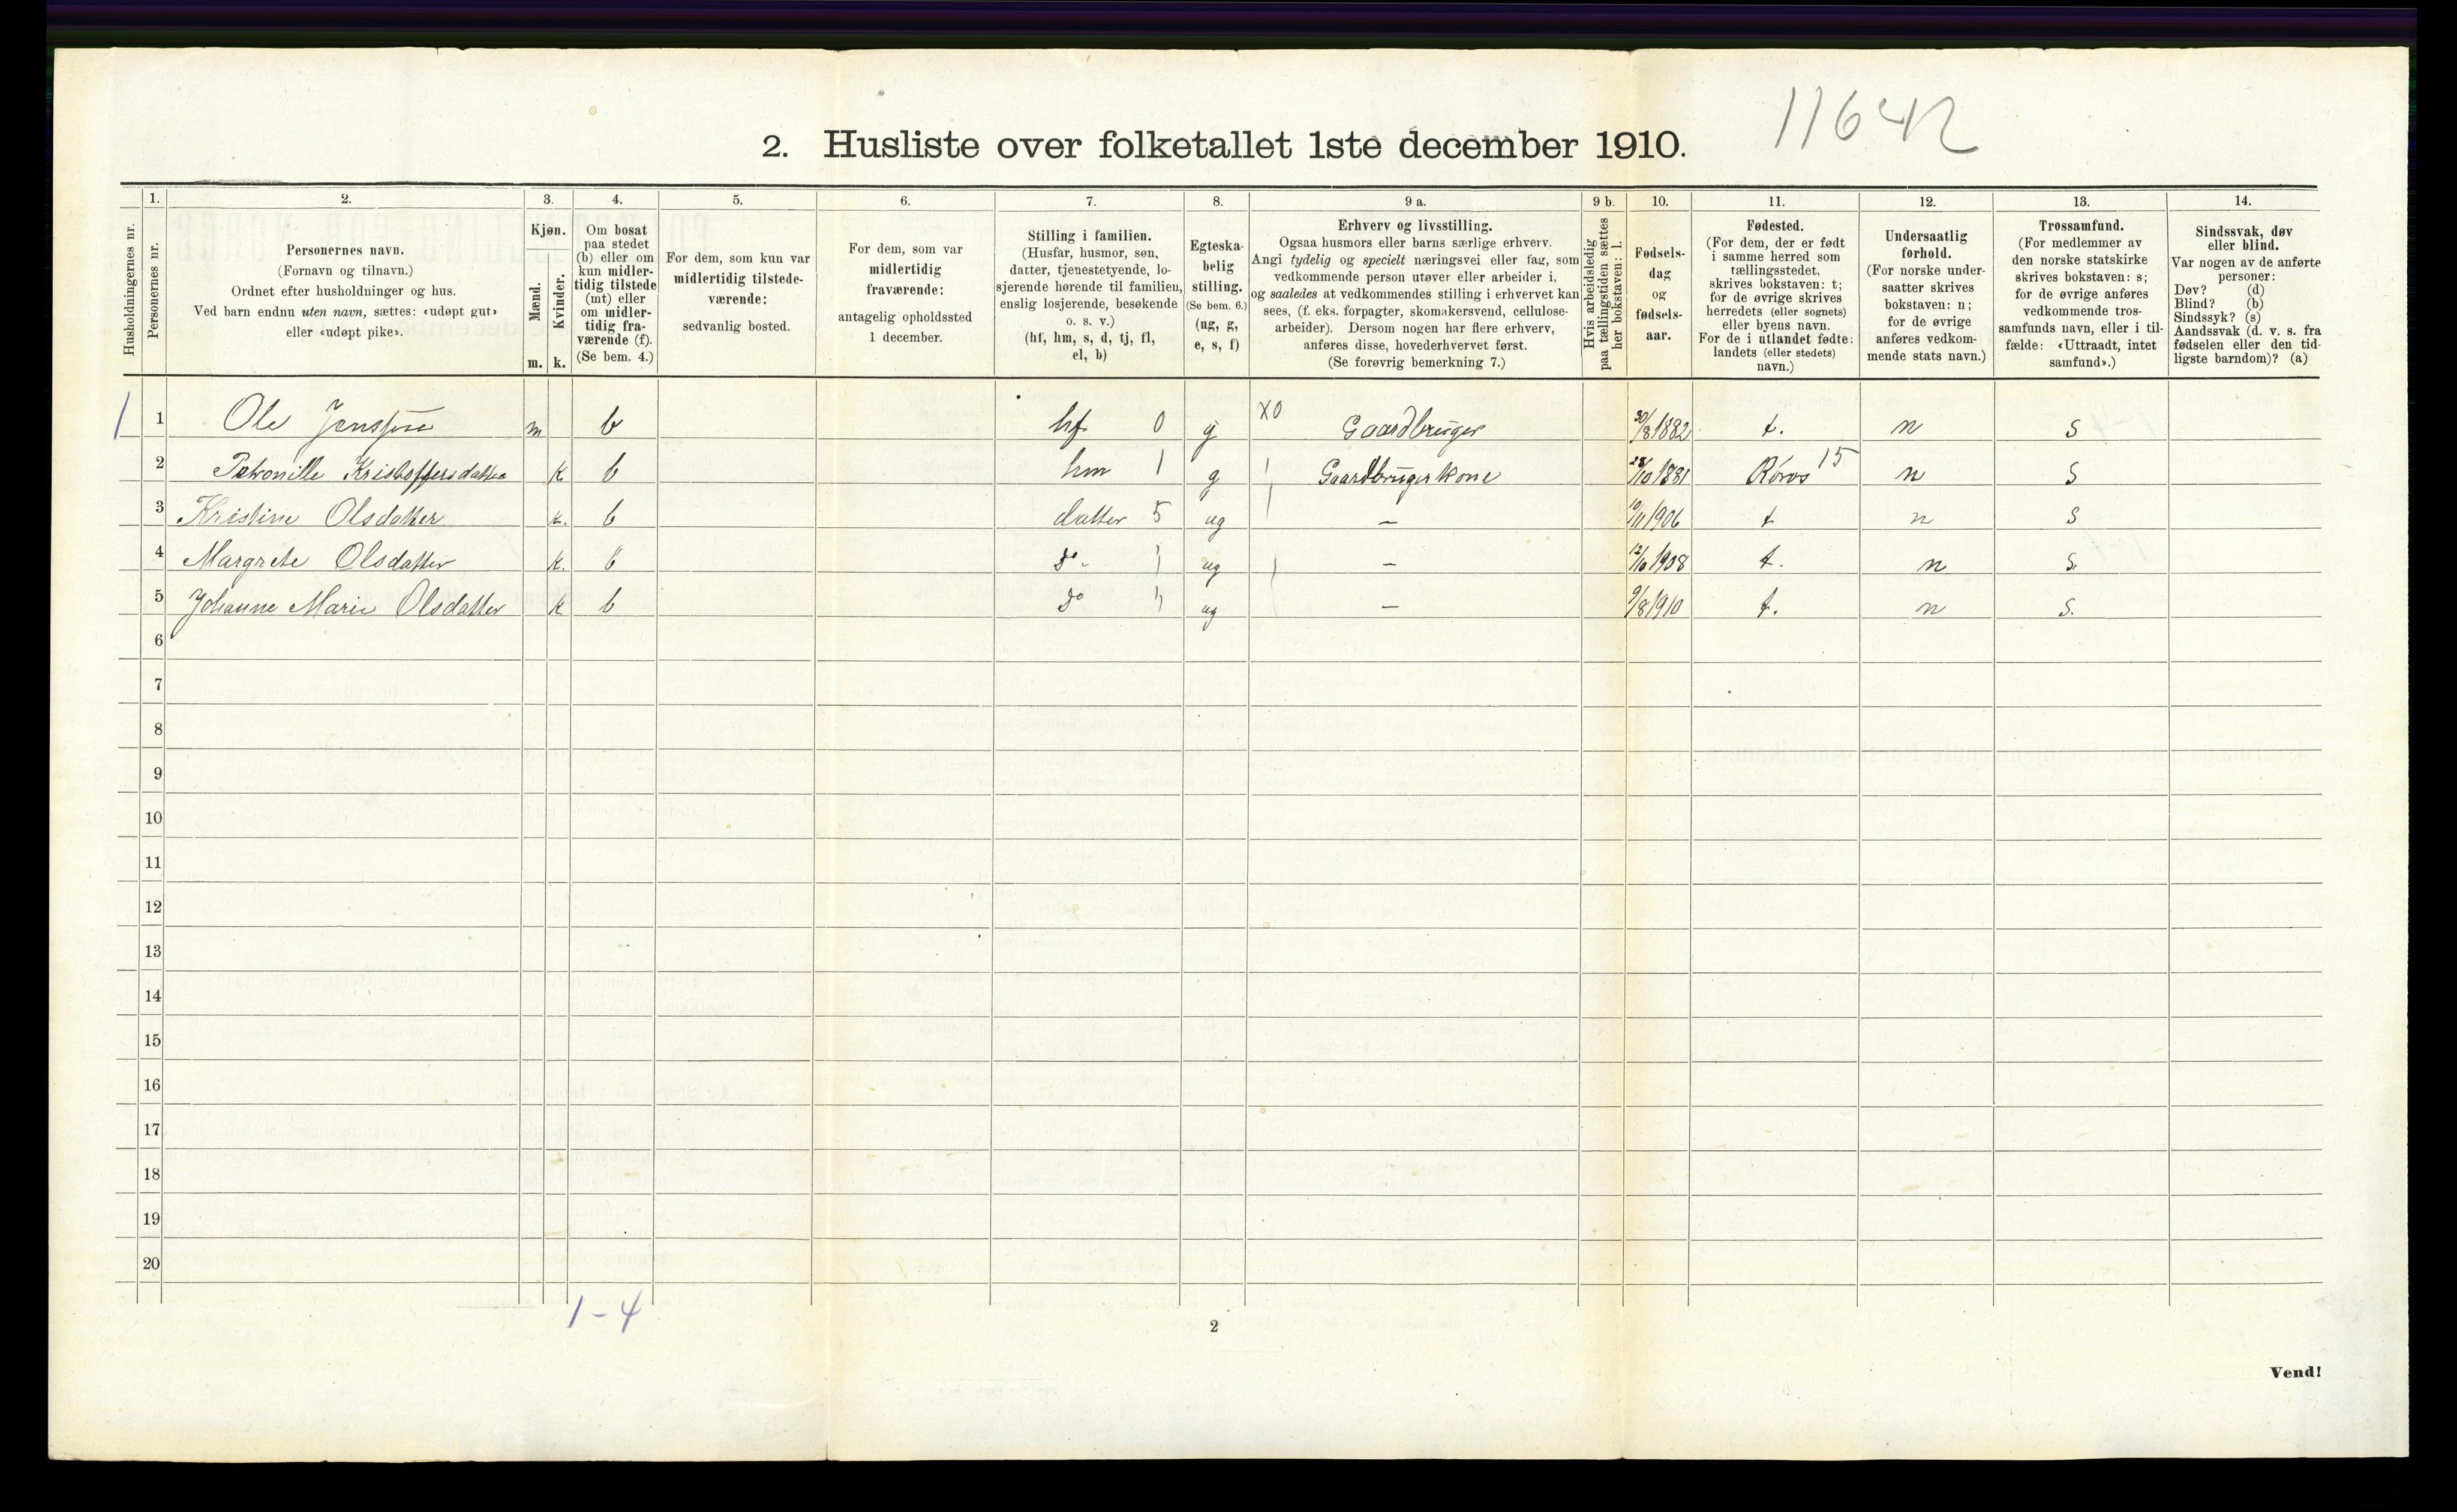 11642
2. Husliste over folketallet 1ste december 1910.
Husholdningernes nr.
1.
Personernes nr.
2.
Personernes navn.
(Fornavn og tilnavn.)
Ordnet efter husholdninger og hus.
Ved barn endnu uten navn, sættes: «udøpt gut»
eller «udøpt pike».
3.
Kjøn.
Mænd.
m.
Kvinder.
k.
4.
Om bosat
paa stedet
(b) eller om
kun midler-
tidig tilstede
(mt) eller
om midler-
tidig fra-
værende (f).
(Se bem. 4.)
5.
For dem, som kun var
midlertidig tilstede-
værende:
sedvanlig bosted.
6.
For dem, som var
midlertidig
fraværende:
antagelig opholdssted
1 december.
7.
Stilling i familien.
(Husfar, husmor, søn,
datter, tjenestetyende, lo-
sjerende hørende til familien,
enslig losjerende, besøkende
o. s. v.)
(hf, hm, s, d, tj, fl,
el, b)
8.
Egteska-
belig
stilling.
(Se bem. 6.)
(ug, g,
e, s, f)
9 a.
Erhverv og livsstilling.
Ogsaa husmors eller barns særlige erhverv.
Angi tydelig og specielt næringsvei eller fag, som
vedkommende person utøver eller arbeider i,
og saaledes at vedkommendes stilling i erhvervet kan
sees, (f. eks. forpagter, skomakersvend, cellulose-
arbeider). Dersom nogen har flere erhverv,
anføres disse, hovederhvervet først.
(Se forøvrig bemerkning 7.)
9 b.
Hvis arbeidsledig
paa tællingstiden sættes
her bokstaven: l.
10.
Fødsels-
dag
og
fødsels-
aar.
11.
Fødested.
(For dem, der er født
i samme herred som
tællingsstedet,
skrives bokstaven: t;
for de øvrige skrives
herredets (eller sognets)
eller byens navn.
For de i utlandet fødte:
landets (eller stedets)
navn.)
12.
Undersaatlig
forhold.
(For norske under-
saatter skrives
bokstaven: n;
for de øvrige
anføres vedkom-
mende stats navn.)
13.
Trossamfund.
(For medlemmer av
den norske statskirke
skrives bokstaven: s;
for de øvrige anføres
vedkommende tros-
samfunds navn, eller i til-
fælde: «Uttraadt, intet
samfund».)
14.
Sindssvak, døv
eller blind.
Var nogen av de anførte
personer:
Døv? (d)
Blind? (b)
Sindssyk? (s)
Aandssvak (d. v. s. fra
fødselen eller den tid-
ligste barndom)? (a)
1 1 Ole Jensson m b hf 0 g X0 Gaardbruger 30/8 1882 t. n s
2 Petronille Kristoffersdatter k b hm 1 g Gaardbruger kone 28/10 1881 Røros 15 n s
3 Kristine Olsdatter k. b datter 5 ug — 10/11 1906 t n s
4 Margrete Olsdatter k. b do ug — 12/10 1908 t. n s.
5 Johanne Marie Olsdatter k b do ug — 9/8 1910 t. n s.
6
7
8
9
10
11
12
13
14
15
16
17
18
19
20
1-4
2
Vend!